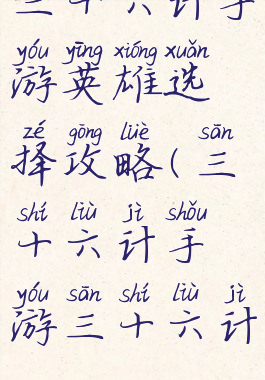 三十六计手
yóu yīng xióng xuǎn
游英雄选
zé gōng lüè sān
择攻略(三
shí liù jì shǒu
十六计手
yóu sān shí liù jì
游三十六计